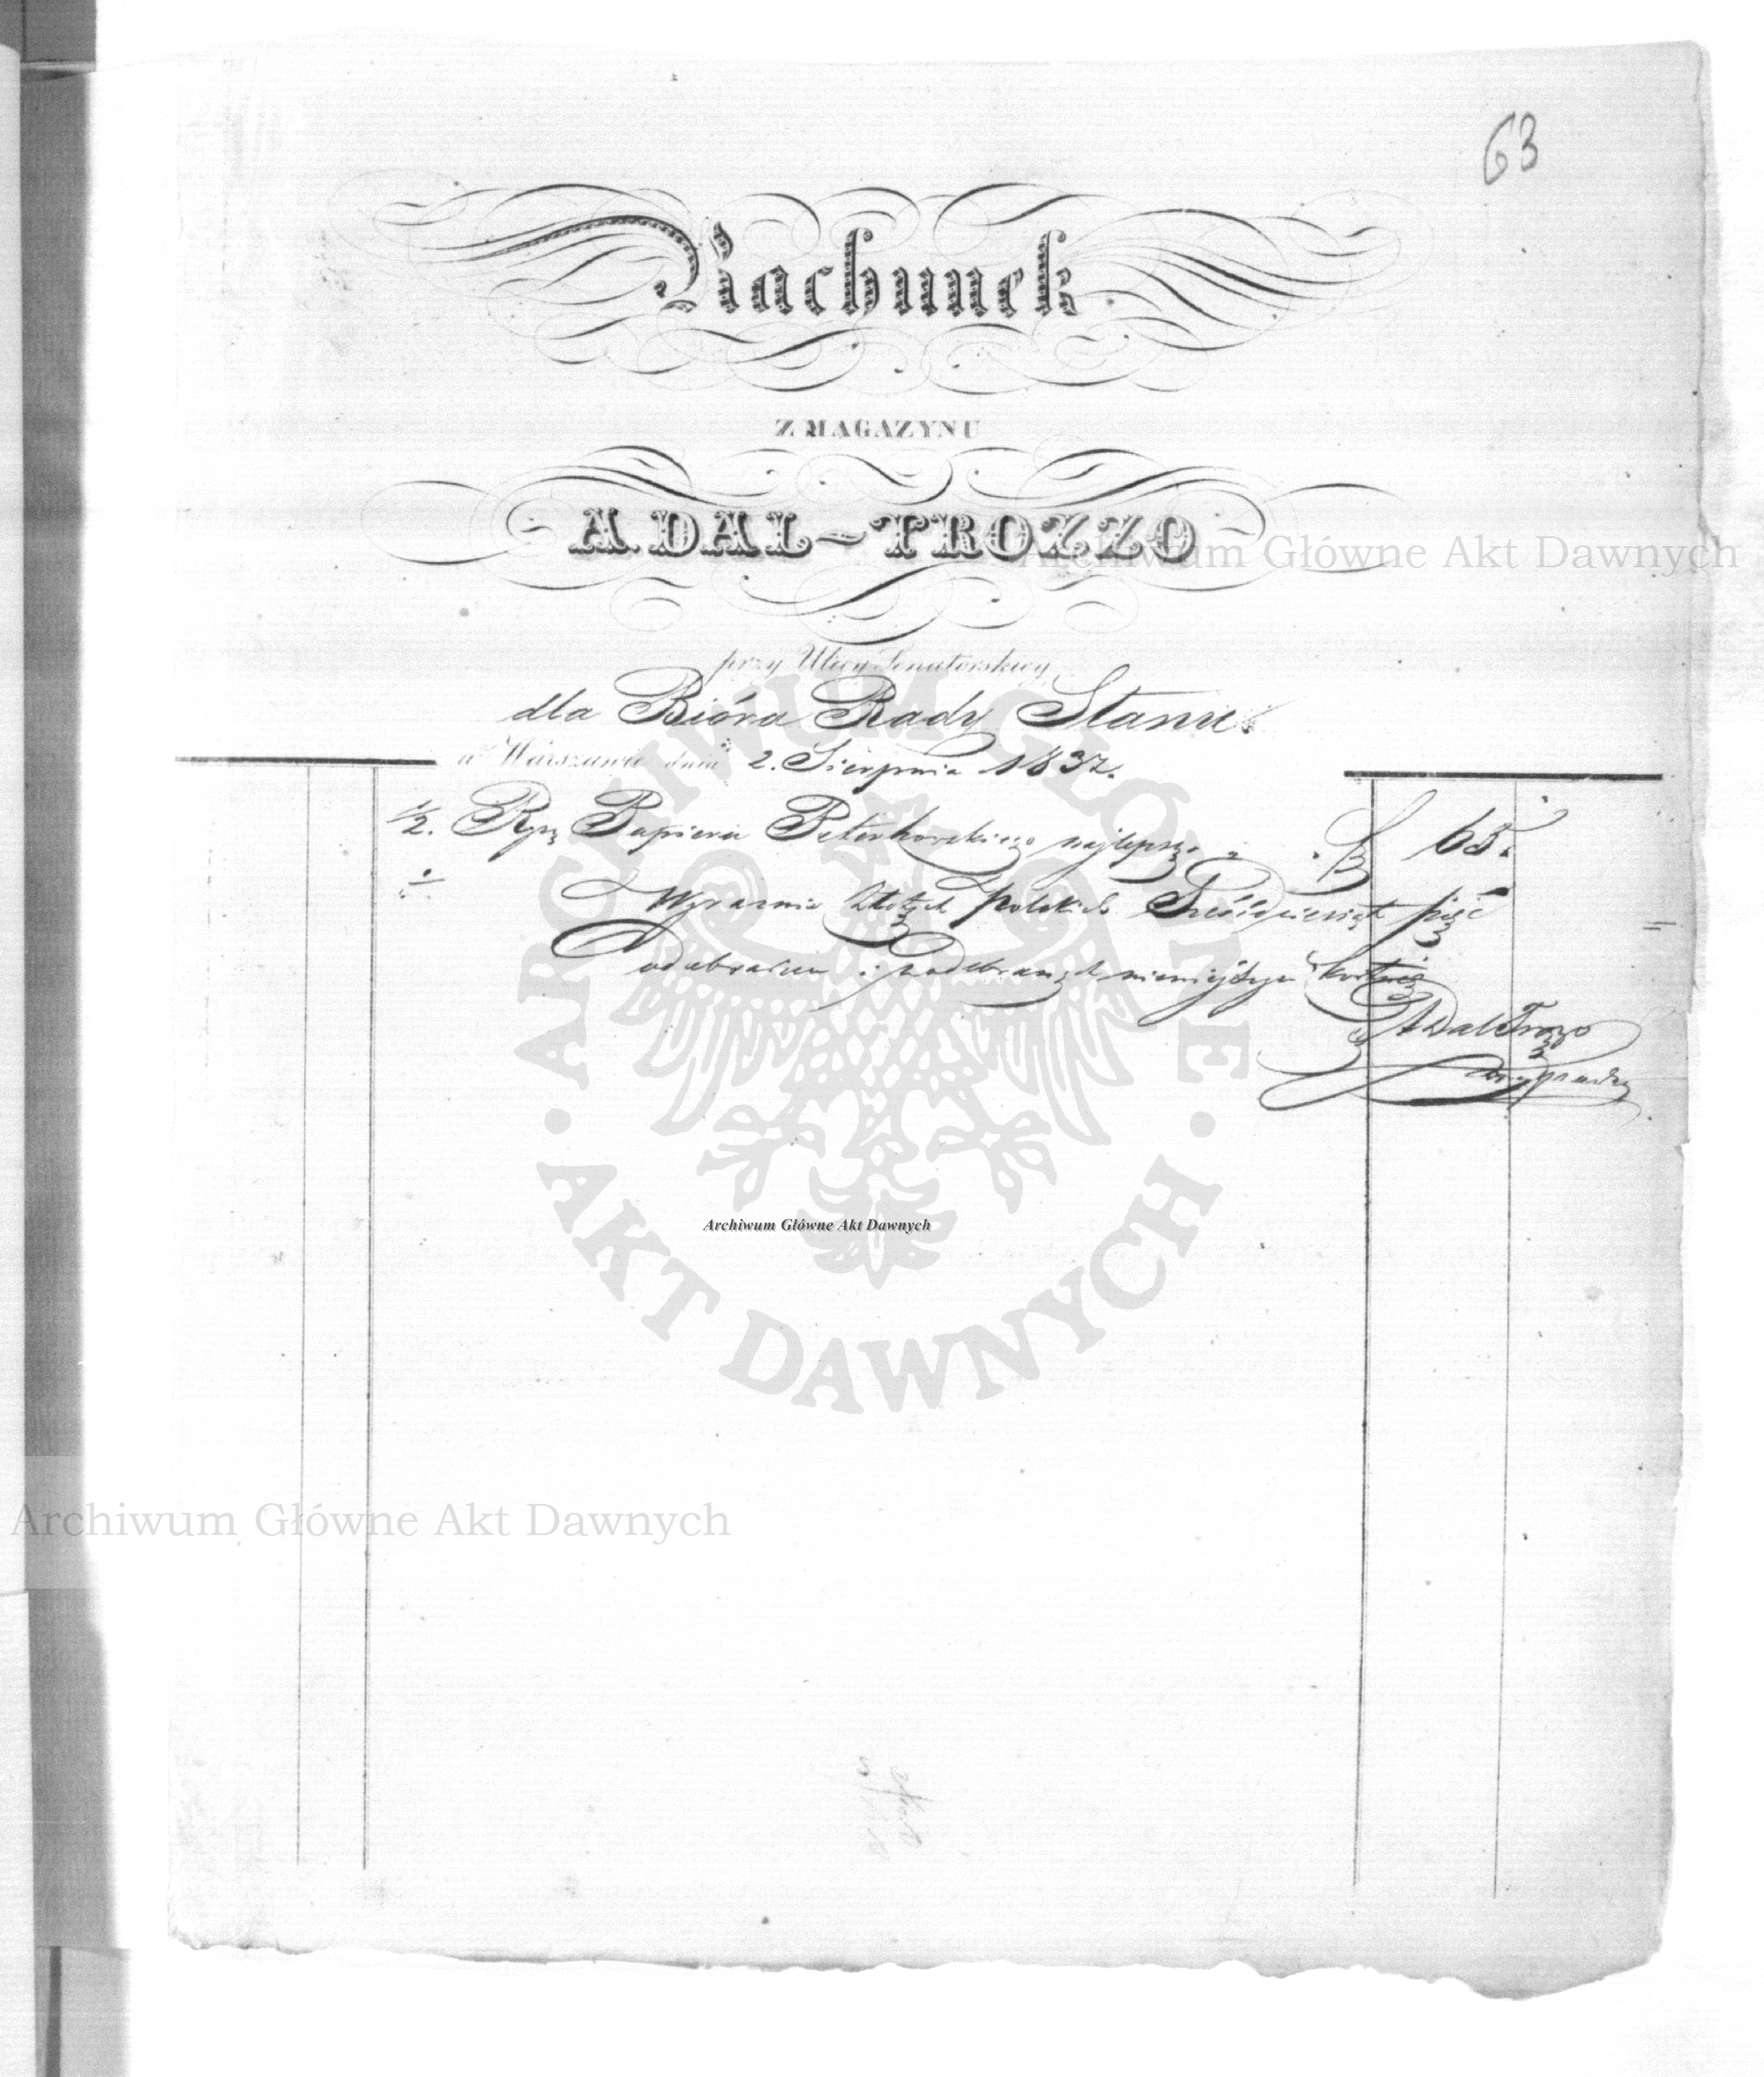 63
Rachunek
Z MAGAZYNU
A. DAL-TROZZO
przy Ulicy Senatorskiey
dla Bióra Rady Stanu.
w Warszawie dnia 2. Sierpnia 1837.
1/2. Ryzy Papieru Peterhowskiego najlepsz. 65.
Wyraznie Złotych Polskich Sześćdziesiąt pięć
odebrałem i
A Dal Trozzo
Archiwum Główne Akt Dawnych
Archiwum Główne Akt Dawnych
Archiwum Główne Akt Dawnych
ARCHIWUM GŁÓWNE AKT DAWNYCH